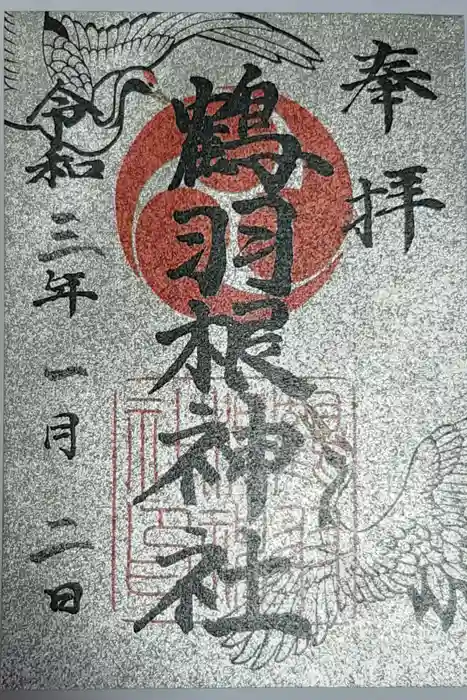 奉拝
鶴羽根神社
令和三年一月二日